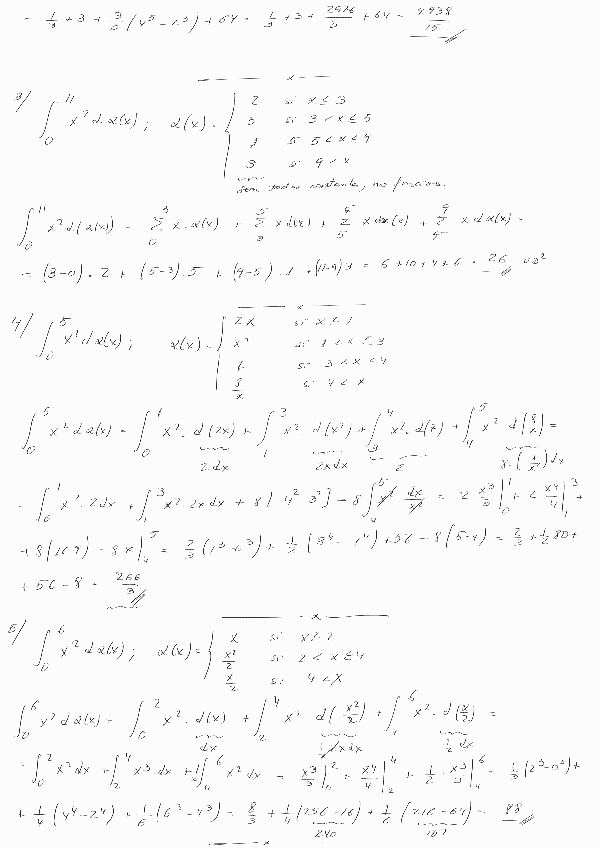 = 1/3 + 3 + 3/5 (4^5 - 2^5) + 64 = 1/3 + 3 + 2976/5 + 64 = 9938/15
3/ ∫_0^11 x² dα(x); α(x) = { 2 si x ≤ 3
5 si 3 < x ≤ 5
1 si 5 < x < 9
3 si 9 < x
Son todas constantes, no
∫_0^11 x² d(α(x)) = Σ_0^3 x·α(x) + Σ_3^5 x α(x) + Σ_5^9 x dα(x) + Σ x dα(x) =
= (3-0)·2 + (5-3)·5 + (9-5)·1 + (11-9)3 = 6+10+4+6 = 26 ud²
4/ ∫_0^5 x² dα(x); α(x) = { 2x si x ≤ 1
x² si 1 < x ≤ 3
si 3 < x < 4
8/x si 4 < x
∫_0^5 x² dα(x) = ∫_0^1 x²·d(2x) + ∫_1^3 x² d(x²) + ∫_3^4 x²·d(7) + ∫_4^5 x² d(8/x) =
2dx 2xdx 8·(1/x²)dx
= ∫_0^1 x²·2dx + ∫_1^3 x²·2x dx + 8[4² 3²] - 8∫_4^5 x² dx/x² = 2 x³/3 |_0^1 + 2 x⁴/4 |_1^3 +
+ 8(16-9) - 8x |_4^5 = 2/3 (1³-0³) + 1/2 (3⁴-1⁴) + 56 - 8(5-4) = 2/3 + 1/2 80 +
+ 56 - 8 = 266/3
5/ ∫_0^6 x² dα(x); α(x) = { x si x ≤ 2
x²/2 si 2 < x ≤ 4
x/2 si 4 < x
∫_0^6 x² dα(x) = ∫_0^2 x²·d(x) + ∫_2^4 x² d(x²/2) + ∫_4^6 x²·d(x/2) =
dx xdx 1/2 dx
= ∫_0^2 x² dx + ∫_2^4 x³ dx + 1/2 ∫_4^6 x² dx = x³/3 |_0^2 + x⁴/4 |_2^4 + 1/2 · x³/3 |_4^6 = 1/3 (2³-0³) +
+ 1/4 (4⁴-2⁴) + 1/6 · (6³-4³) = 8/3 + 1/4 (256-16) + 1/6 (216-64) = 88
240 152